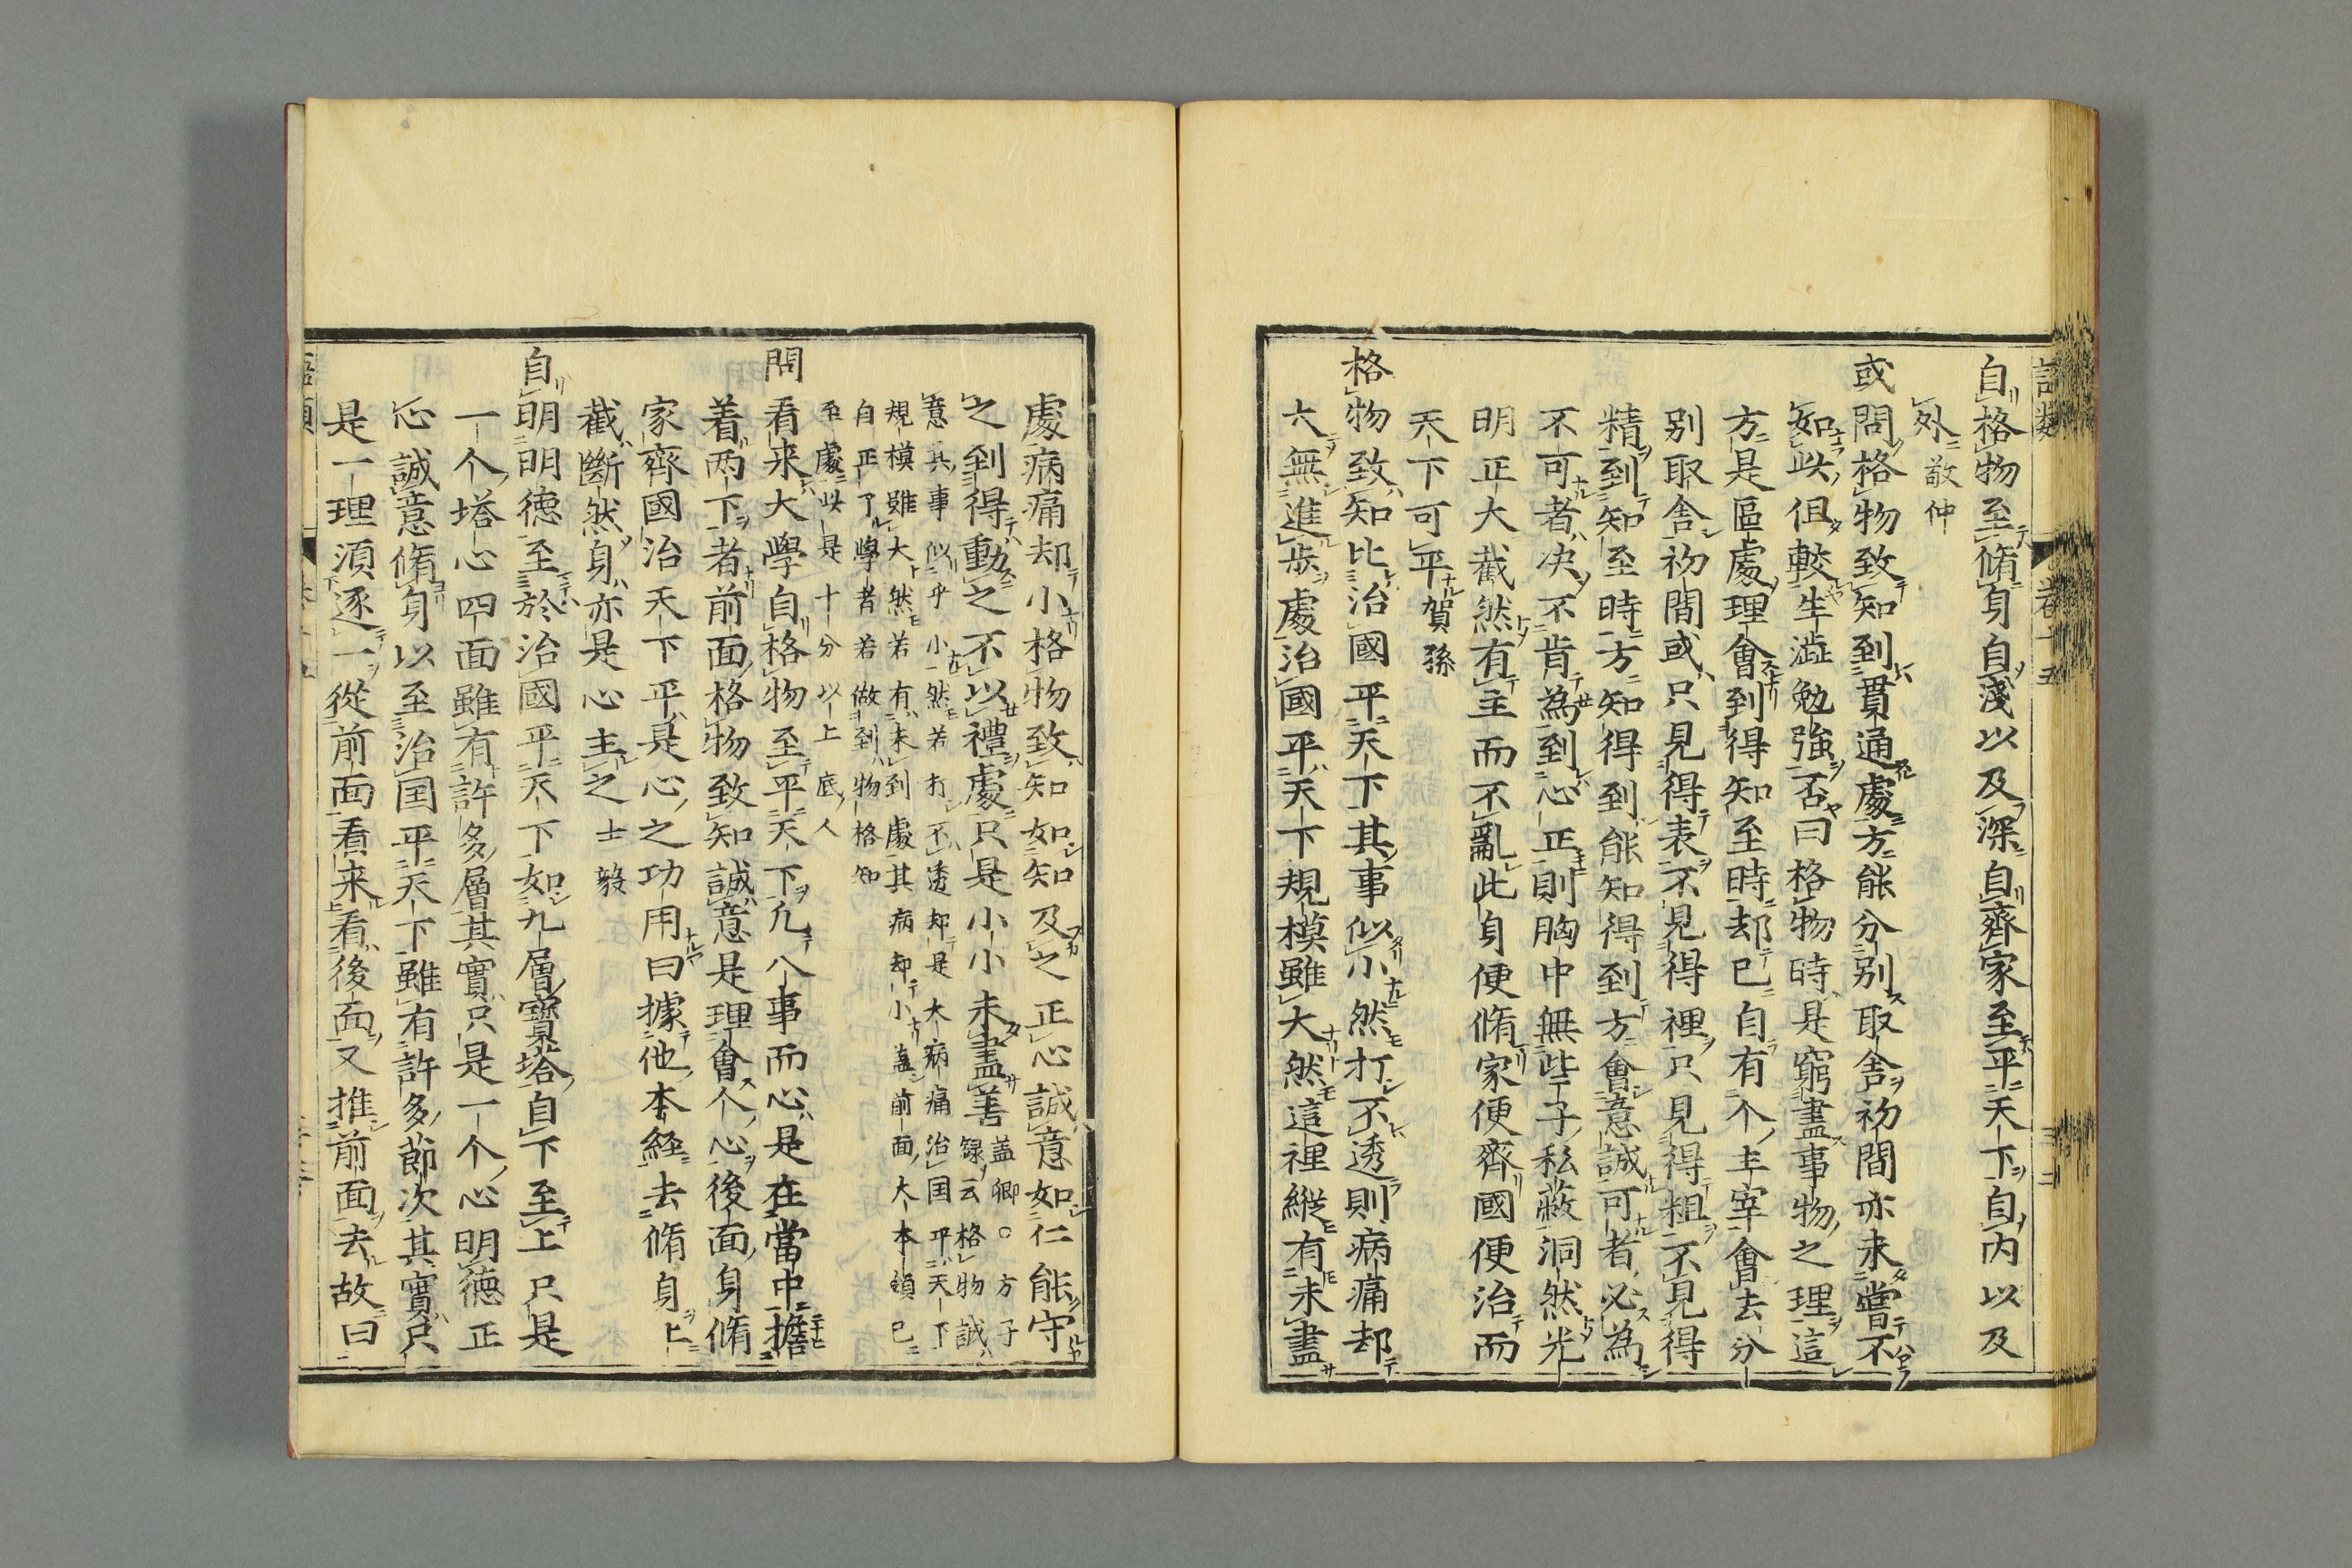 自格物至脩身自淺以及深自齊家至平天下自内以及
外敬仲
或問格物致知到貫通處方能分別取舍初間亦未嘗不
如此但較生澁勉強否曰格物時是窮盡事物之理這
方是區處理會到得知至時却已自有个主宰會去分
別取舍初間或只見得表不見得裡只見得粗不見得
精到知至時方知得到能知得到方會意誠可者必為
不可者决不肯為到心正則胸中無些子私蔽洞然光
明正大截然有主而不亂此身便脩家便齊國便治而
天下可平賀孫
格物致知比治國平天下其事似小然打不透則病痛却
大無進步處治國平天下規模雖大然這裡縱有未盡
處病痛却小格物致知如知及之正心誠意如仁能守
之到得動之不以禮處只是小小未盡善
蓋卿○方子
録云格物誠
意其事似乎小然若打不透却是大病痛治国平天下
規模雖大然若有未到處其病却小蓋前面大本領已
自正了學者若做到物格知
至處此是十分以上底人
問看来大學自格物至平天下凢八事而心是在當中擔
着两下者前面格物致知誠意是理會个心後面身脩
家齊國治天下平是心之功用曰據他本経去脩身上
截斷然身亦是心主之士毅
自明明德至於治國平天下如九層寶塔自下至上只是
一个塔心四面雖有許多層其實只是一个心明德正
心誠意脩身以至治国平天下雖有許多節次其實只
是一理須逐一從前面看来看後面又推前面去故曰